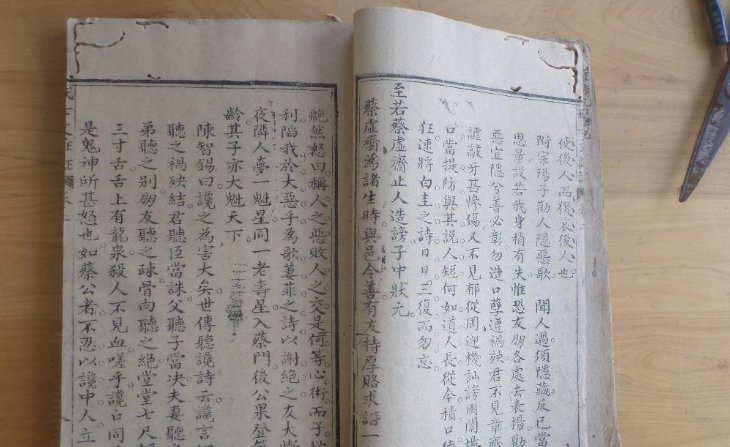 使後人而復哀後人也
附宗陽子勸人隱惡歌 聞人過須隱藏反已當
思量設若我身稍有失惟恐友朋各處去表揚勸
惡宜隱兮善必彰勿逞口孽遭禍殃君不見韋
譃敲牙甚慘傷又不見郁從周迎機訕謗圖
口當提防與其說人短何如道人長從今積口
狂速將白圭之詩日日三復而勿忘
至若蔡虛齋止人造謗子中狀元
蔡虛齋為諸生時與邑令善有友特厚賂求譖一
艴然怒曰稱人之惡敗人之交是何等心術而子
利陷我於大惡乎為歌萋菲之詩以謝絕之友大慚
夜隣人夢一魁星同一老壽星入蔡門後公果登
齡其子亦大魁天下
陳智錫曰讒之為害大矣世傳聽讒詩云讒言
聽之禍殃結君聽臣當誅父聽子當决夫妻聽
弟聽之别朋友聽之疎骨肉聽之絕堂堂七尺
三寸舌舌上有龍泉殺人不見血嗟乎讒口同
是鬼神所甚怒也如蔡公者不忍以讒中人立